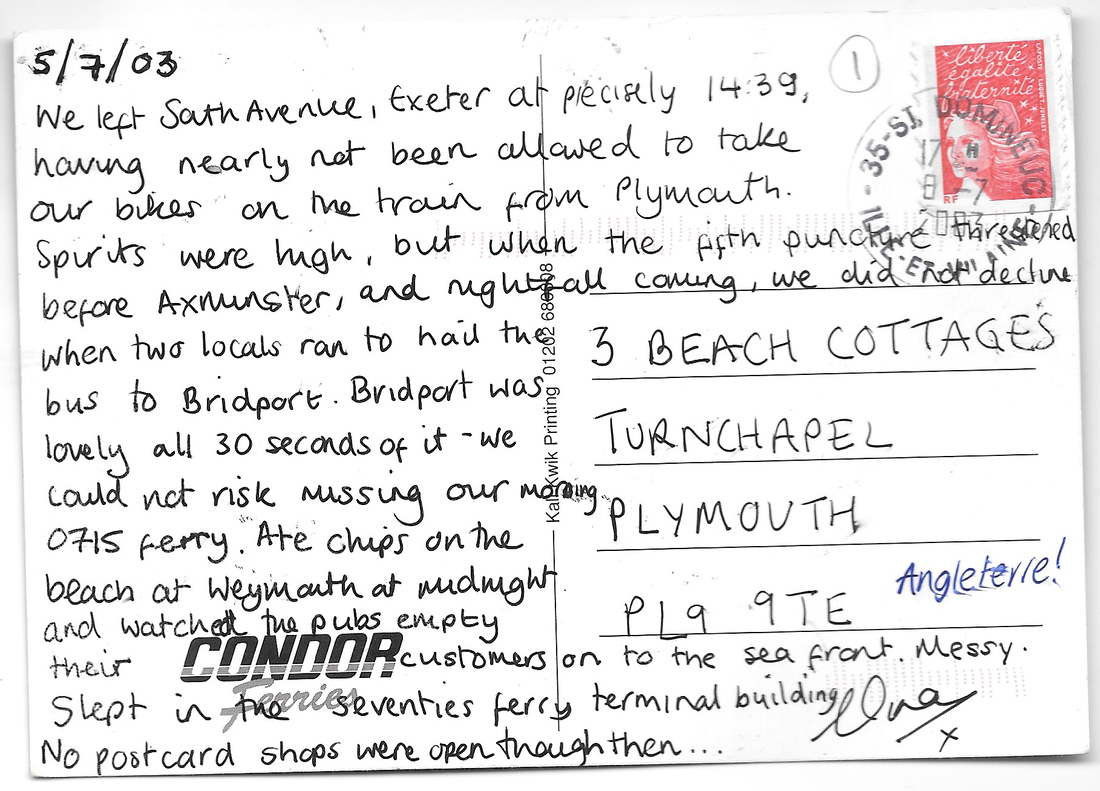 5/7/03
①
liberté
égalité
fraternité
LAPOSTE LUQUET, JUMELET
RF
35-ST DOMINEUC
17 H
8 -7
2003
ILLE-ET-VILAINE
We left South Avenue, Exeter at precisely 14:39,
having nearly not been allowed to take
our bikes on the train from Plymouth.
Spirits were high, but when the fifth puncture threatened
before Axminster, and nightfall coming, we did not decline
when two locals ran to hail the
bus to Bridport. Bridport was
lovely all 30 seconds of it - we
could not risk missing our morning
0715 ferry. Ate chips on the
beach at Weymouth at midnight
and watched the pubs empty
their customers on to the sea front. Messy.
Slept in the seventies ferry terminal building
No postcard shops were open though then...
x
CONDOR
Ferries
Kall Kwik Printing 01202
3 BEACH COTTAGES
TURNCHAPEL
PLYMOUTH
PL9 9TE
Angleterre!